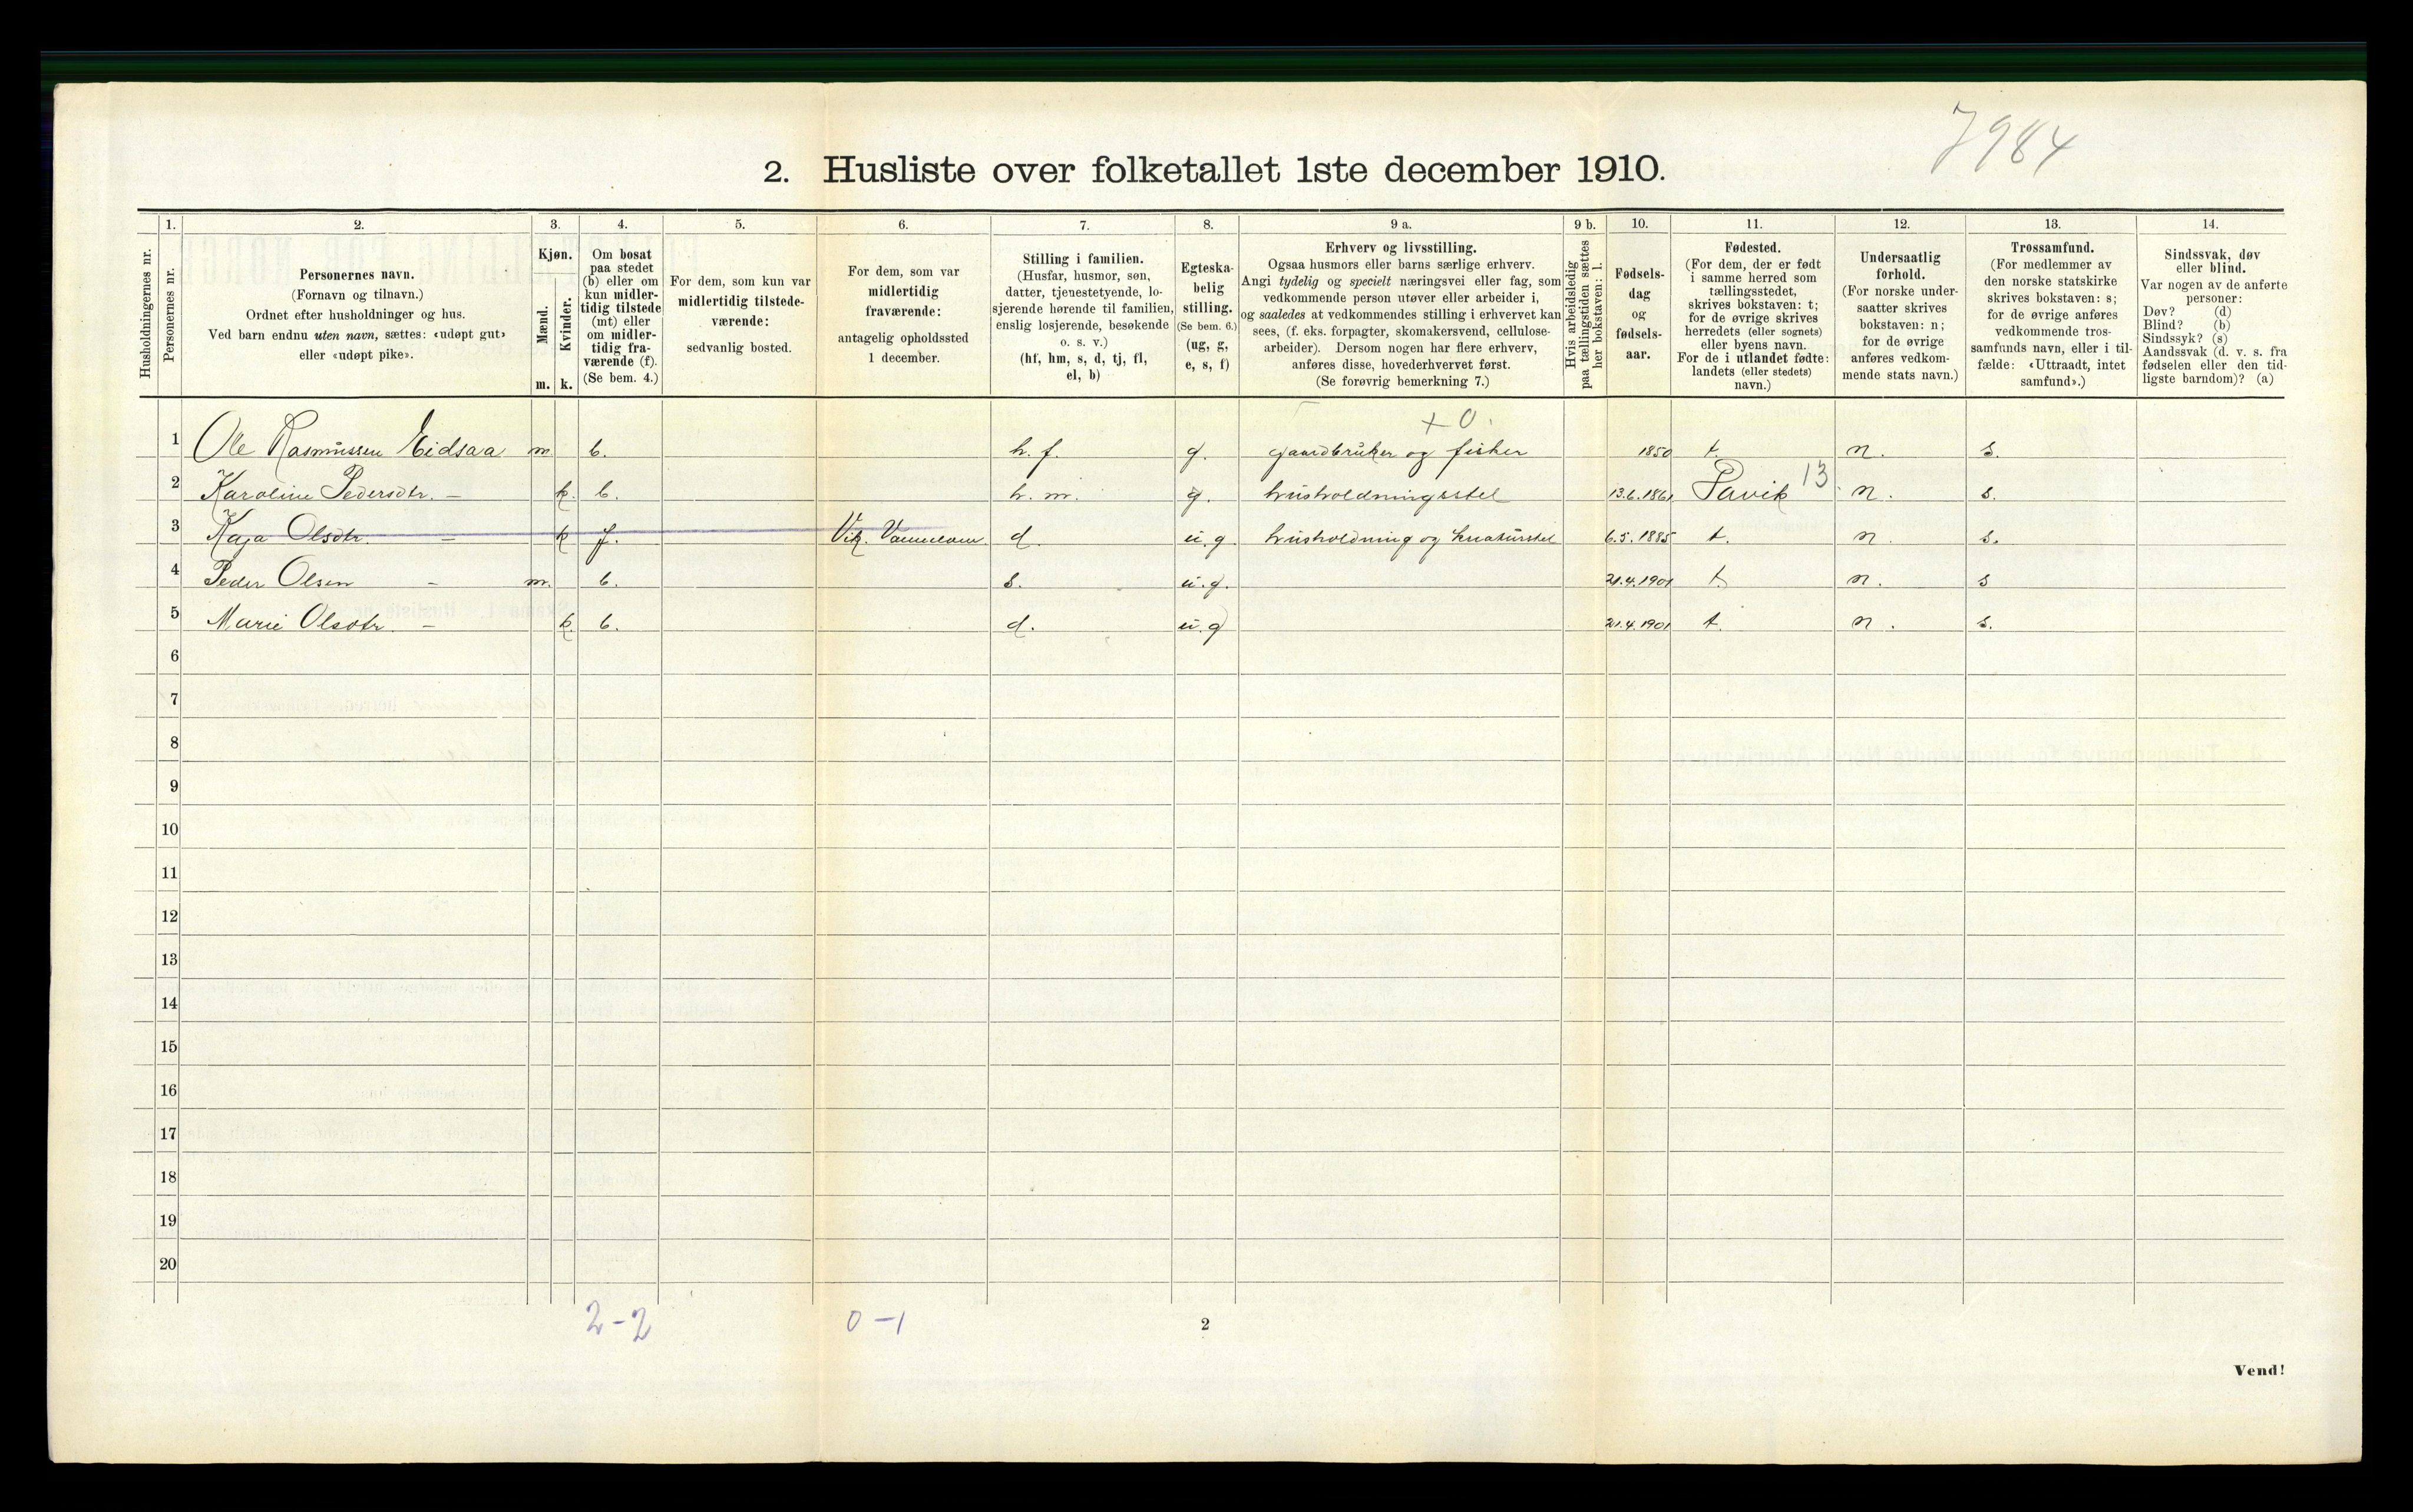 7984
2. Husliste over folketallet 1ste december 1910.
1. 2. 3. 4. 5. 6. 7. 8. 9 a. 9 b. 10. 11. 12. 13. 14.
Husholdningernes nr.
Personernes nr.
Personernes navn.
(Fornavn og tilnavn.)
Ordnet efter husholdninger og hus.
Ved barn endnu uten navn, sættes: «udøpt gut»
eller «udøpt pike».
Kjøn.
Mænd.
Kvinder.
m. k.
Om bosat
paa stedet
(b) eller om
kun midler-
tidig tilstede
(mt) eller
om midler-
tidig fra-
værende (f).
(Se bem. 4.)
For dem, som kun var
midlertidig tilstede-
værende:
sedvanlig bosted.
For dem, som var
midlertidig
fraværende:
antagelig opholdssted
1 december.
Stilling i familien.
(Husfar, husmor, søn,
datter, tjenestetyende, lo-
sjerende hørende til familien,
enslig losjerende, besøkende
o. s. v.)
(hf, hm, s, d, tj, fl,
el, b)
Egteska-
belig
stilling.
(Se bem. 6.)
(ug, g,
e, s, f)
Erhverv og livsstilling.
Ogsaa husmors eller barns særlige erhverv.
Angi tydelig og specielt næringsvei eller fag, som
vedkommende person utøver eller arbeider i,
og saaledes at vedkommendes stilling i erhvervet kan
sees, (f. eks. forpagter, skomakersvend, cellulose-
arbeider). Dersom nogen har flere erhverv,
anføres disse, hovederhvervet først.
(Se forøvrig bemerkning 7.)
Hvis arbeidsledig
paa tællingstiden sættes
her bokstaven: l.
Fødsels-
dag
og
fødsels-
aar.
Fødested.
(For dem, der er født
i samme herred som
tællingsstedet,
skrives bokstaven: t;
for de øvrige skrives
herredets (eller sognets)
eller byens navn.
For de i utlandet fødte:
landets (eller stedets)
navn.)
Undersaatlig
forhold.
(For norske under-
saatter skrives
bokstaven: n;
for de øvrige
anføres vedkom-
mende stats navn.)
Trossamfund.
(For medlemmer av
den norske statskirke
skrives bokstaven: s;
for de øvrige anføres
vedkommende tros-
samfunds navn, eller i til-
fælde: «Uttraadt, intet
samfund».)
Sindssvak, døv
eller blind.
Var nogen av de anførte
personer:
Døv? (d)
Blind? (b)
Sindssyk? (s)
Aandssvak (d. v. s. fra
fødselen eller den tid-
ligste barndom)? (a)
+ 0.
1 Ole Rasmussen Eidsaa m b. h. f. g. gaardbruker og fisker 1850 t. n. s.
2 Karoline Pedersdtr. - k. b. h. m. g. husholdningsstel 13.6.1861 Pavik 13 n. s.
3 Kaja Olsdtr. - k f. Vik. d. u. g husholdning og kreaturstel 6.5.1885 t. n. s.
4 Peder Olsen - m. b. s. u. g. 21.4.1901 t. n. s
5 Marie Olsdtr. - k. b. d. u. g 21.4.1901 t. n. s.
6
7
8
9
10
11
12
13
14
15
16
17
18
19
20
2-2 0-1 2
Vend!